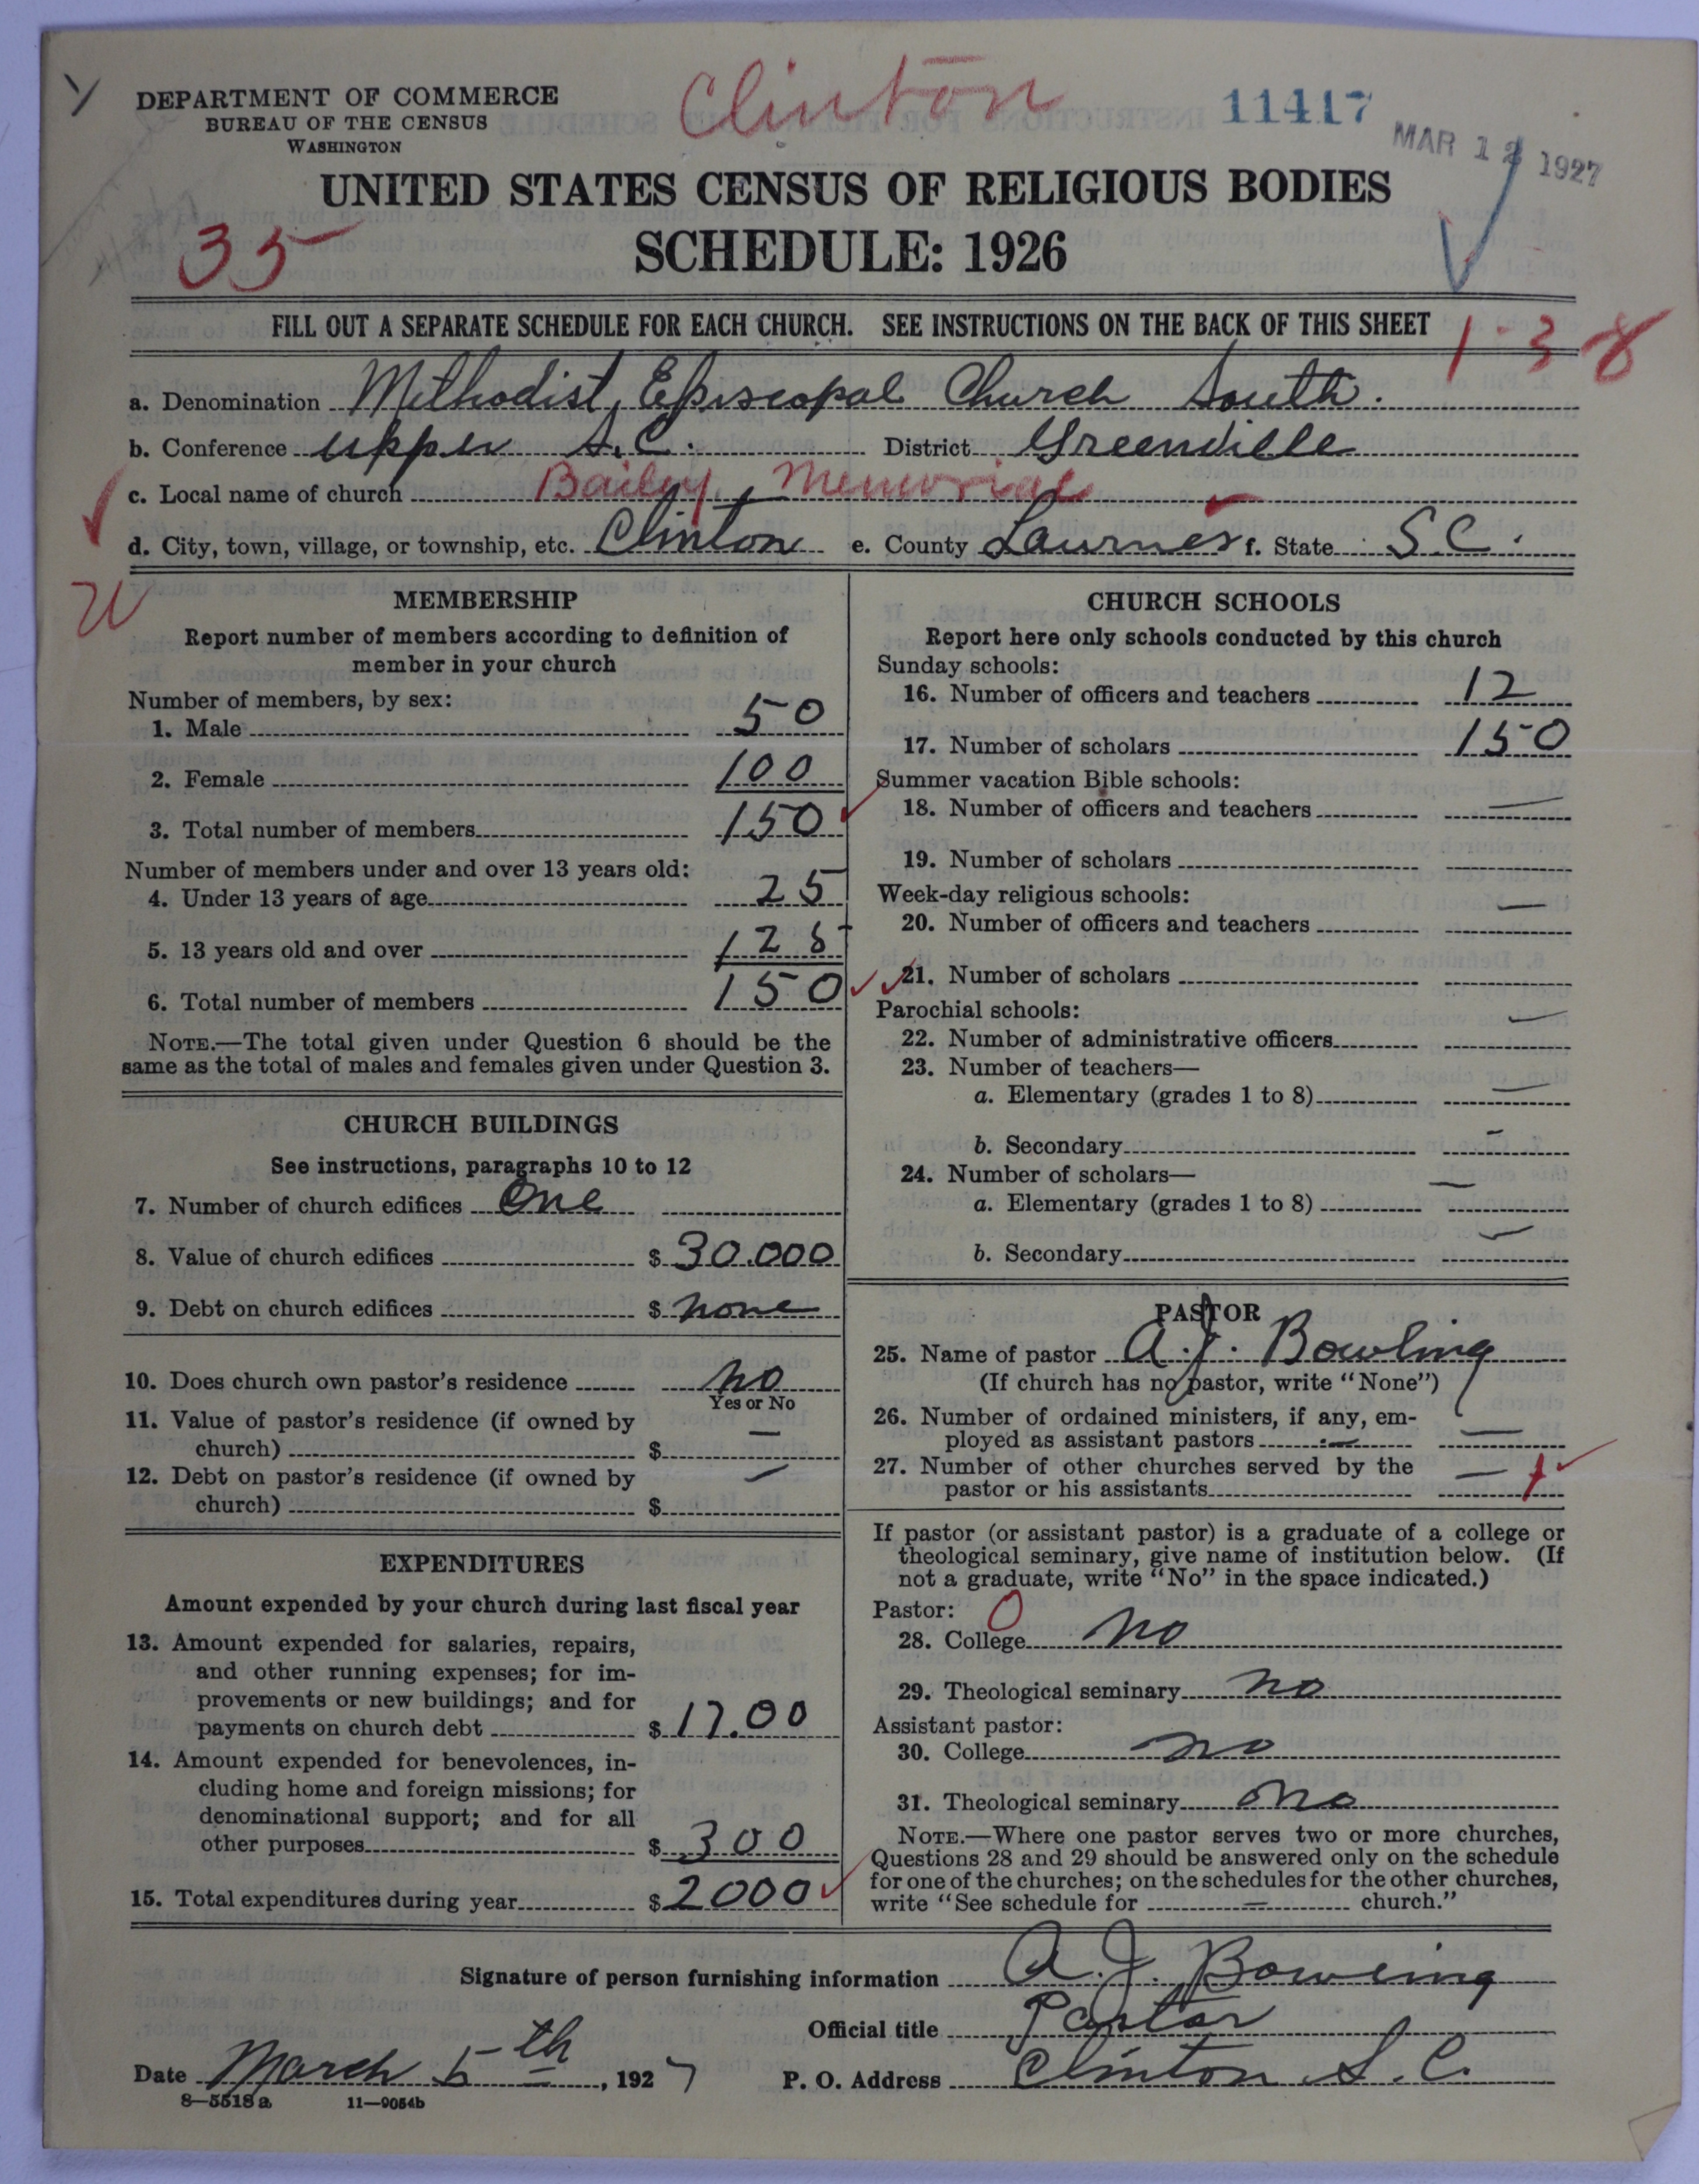 Clinton
11417
MAR 12 1927
DEPARTMENT OF COMMERCE
BUREAU OF THE CENSUS
WASHINGTON
UNITED STATES CENSUS OF RELIGIOUS BODIES
35
SCHEDULE: 1926
FILL OUT A SEPARATE SCHEDULE FOR EACH CHURCH. SEE INSTRUCTIONS ON THE BACK OF THIS SHEET
1-38
a. Denomination Methodist, Episcopal Church South.
b. Conference Upper S.C. District Greenville
c. Local name of church Bailey Memorial
d. City, town, village, or township, etc. Clinton e. County Laurnes f. State S.C.
MEMBERSHIP
Report number of members according to definition of
member in your church
Number of members, by sex:
1. Male 50
2. Female 100
3. Total number of members 150
Number of members under and over 13 years old:
4. Under 13 years of age 25
5. 13 years old and over 125
6. Total number of members 150
NOTE.—The total given under Question 6 should be the
same as the total of males and females given under Question 3.
CHURCH BUILDINGS
See instructions, paragraphs 10 to 12
7. Number of church edifices One
8. Value of church edifices $ 30.000
9. Debt on church edifices $ none
10. Does church own pastor's residence no
Yes or No
11. Value of pastor's residence (if owned by
church) $ —
12. Debt on pastor's residence (if owned by
church) $ —
EXPENDITURES
Amount expended by your church during last fiscal year
13. Amount expended for salaries, repairs,
and other running expenses; for im-
provements or new buildings; and for
payments on church debt $ 17.00
14. Amount expended for benevolences, in-
cluding home and foreign missions; for
denominational support; and for all
other purposes $ 300
15. Total expenditures during year $ 2000
CHURCH SCHOOLS
Report here only schools conducted by this church
Sunday schools:
16. Number of officers and teachers 12
17. Number of scholars 150
Summer vacation Bible schools:
18. Number of officers and teachers —
19. Number of scholars
Week-day religious schools:
20. Number of officers and teachers —
21. Number of scholars
Parochial schools:
22. Number of administrative officers —
23. Number of teachers—
a. Elementary (grades 1 to 8) —
b. Secondary —
24. Number of scholars—
a. Elementary (grades 1 to 8) —
b. Secondary —
PASTOR
25. Name of pastor A.J. Bowling
(If church has no pastor, write "None")
26. Number of ordained ministers, if any, em-
ployed as assistant pastors —
27. Number of other churches served by the
pastor or his assistants —
If pastor (or assistant pastor) is a graduate of a college or
theological seminary, give name of institution below. (If
not a graduate, write "No" in the space indicated.)
Pastor: 0
28. College no
29. Theological seminary no
Assistant pastor:
30. College no
31. Theological seminary no
NOTE.—Where one pastor serves two or more churches,
Questions 28 and 29 should be answered only on the schedule
for one of the churches; on the schedules for the other churches,
write "See schedule for — church."
Signature of person furnishing information A.J. Bowling
Official title Pastor
Date March 5th, 1927 P. O. Address Clinton S.C.
8—5518a 11—9054b